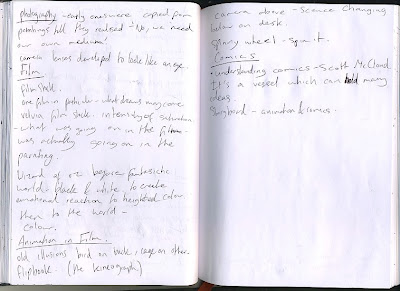 photography - early ones were copied from
paintings till they realised - "No, we need
our own medium"
camera lenses developed to look like an eye.
Film
film stock.
one film in particular - what dreams may come
velvia film stock. intensity of saturation
- what was going on in the film -
was actually going on in the
painting.
Wizard of oz before fantastic
world - black & white to create
emotional reaction to heightened colour.
then to the world -
colour.
Animation in Film.
old illusions bird on back, cage on other.
flipbook. (the kineograph)
camera above - Science Changing
below on desk.
spinny wheel - spin it.
Comics
- understanding comics - Scott McCloud
It's a vessel which can hold many
ideas.
Storyboard - animation & comics.